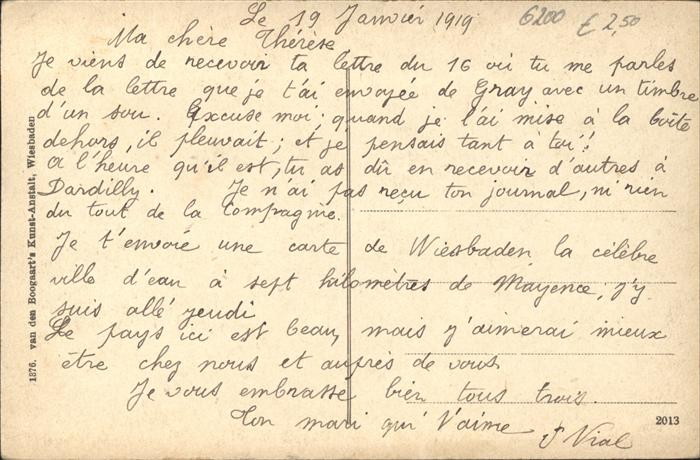 Le 19 Janvier 1919
6200
£ 2,50
Ma chère Thérèse
Je viens de recevoir ta lettre du 16 où tu me parles
de la lettre que je t'ai envoyée de Gray avec un timbre
d'un sou. Excuse moi; quand je l'ai mise à la boîte
dehors, il pleuvait; et je pensais tant à toi!!
A l'heure qu'il est, tu as dû en recevoir d'autres à
Dardilly. Je n'ai pas reçu ton journal, ni rien
du tout de la Compagnie.
Je t'envoie une carte de Wiesbaden la célèbre
ville d'eau à sept kilomètres de Mayence; j'y
suis allé jeudi
Le pays ici est beau, mais j'aimerai mieux
être chez nous et auprès de vous
Je vous embrasse bien tous trois.
Ton mari qui t'aime
J Vial
1876. van den Boogaart's Kunst-Anstalt, Wiesbaden
2013